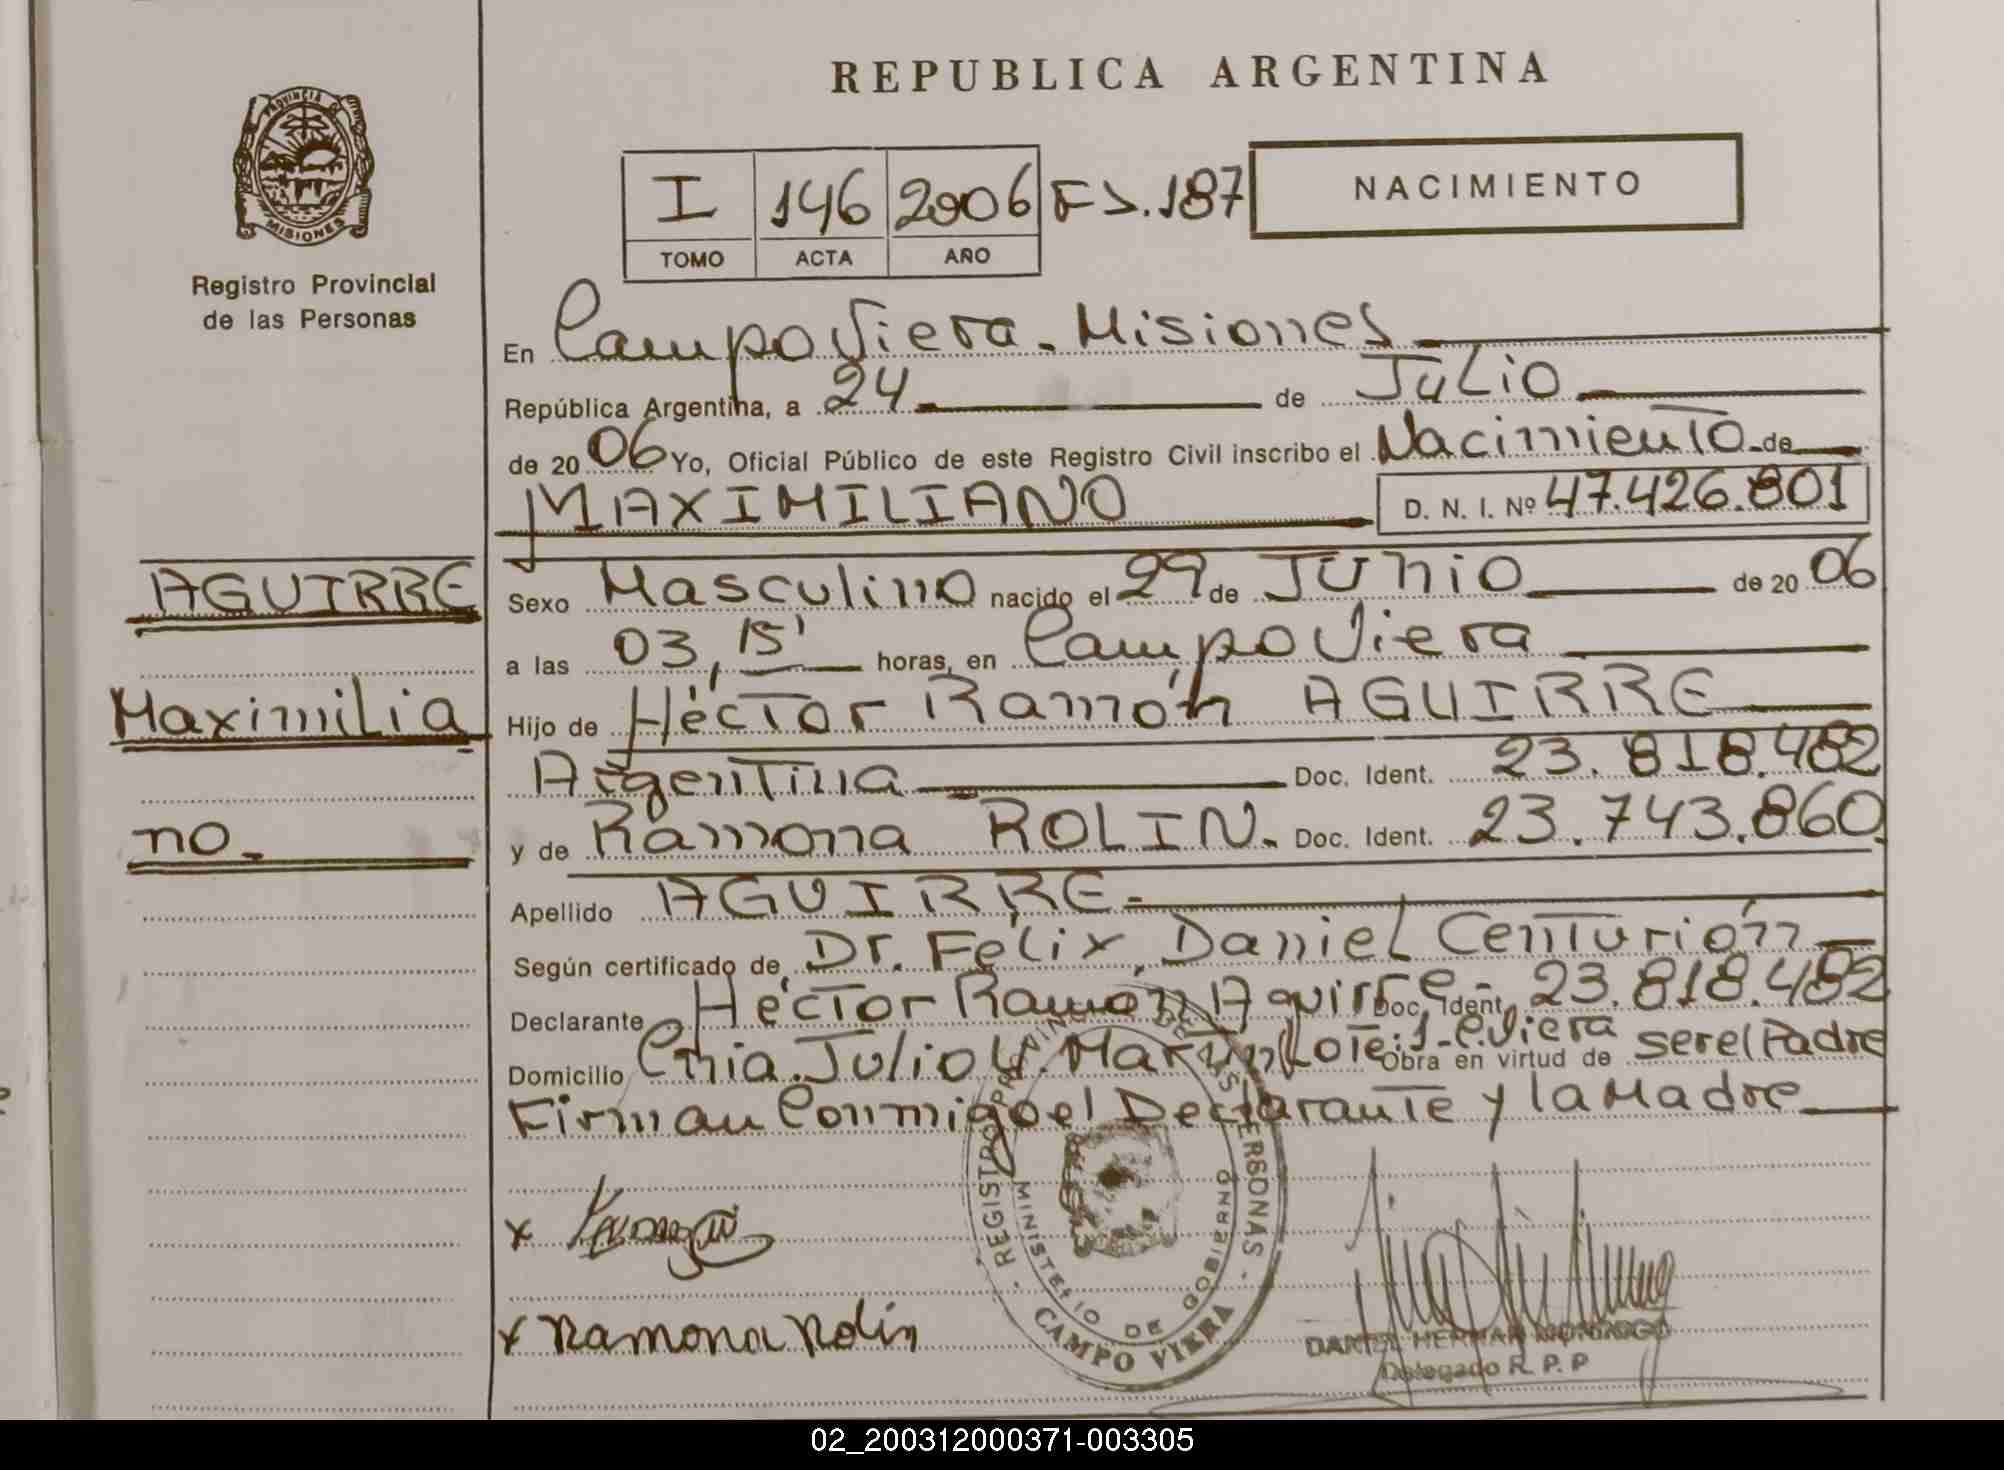 REPUBLICA ARGENTINA
PROVINCIA DE
MISIONES
Registro Provincial
de las Personas
I 146 2006 Fº.187
TOMO ACTA AÑO
NACIMIENTO
En Campo Viera - Misiones
República Argentina, a 24 de Julio
de 20 06 Yo, Oficial Público de este Registro Civil inscribo el Nacimiento de
MAXIMILIANO D. N. I. Nº 47.426.801
AGUIRRE
Maximilia
no.
Sexo Masculino nacido el 29 de Junio de 20 06
a las 03,15' horas, en Campo Viera
Hijo de Héctor Ramón AGUIRRE
Argentina Doc. Ident. 23.818.482
y de Ramona ROLIN. Doc. Ident. 23.743.860.
Apellido AGUIRRE.
Según certificado de Dr. Félix, Daniel Centurión
Declarante Héctor Ramón Aguirre - Doc. Ident. 23.818.482
Domicilio Cnia. Julio U. Martin Lote: 1 - C. Viera Obra en virtud de ser el Padre
Firman Conmigo el Declarante y la Madre
x
x Ramona Rolin
REGISTRO PROVINCIAL DE LAS PERSONAS
MINISTERIO DE GOBIERNO
CAMPO VIERA
DANIEL HERNAN
Delegado R. P. P
02_200312000371-003305